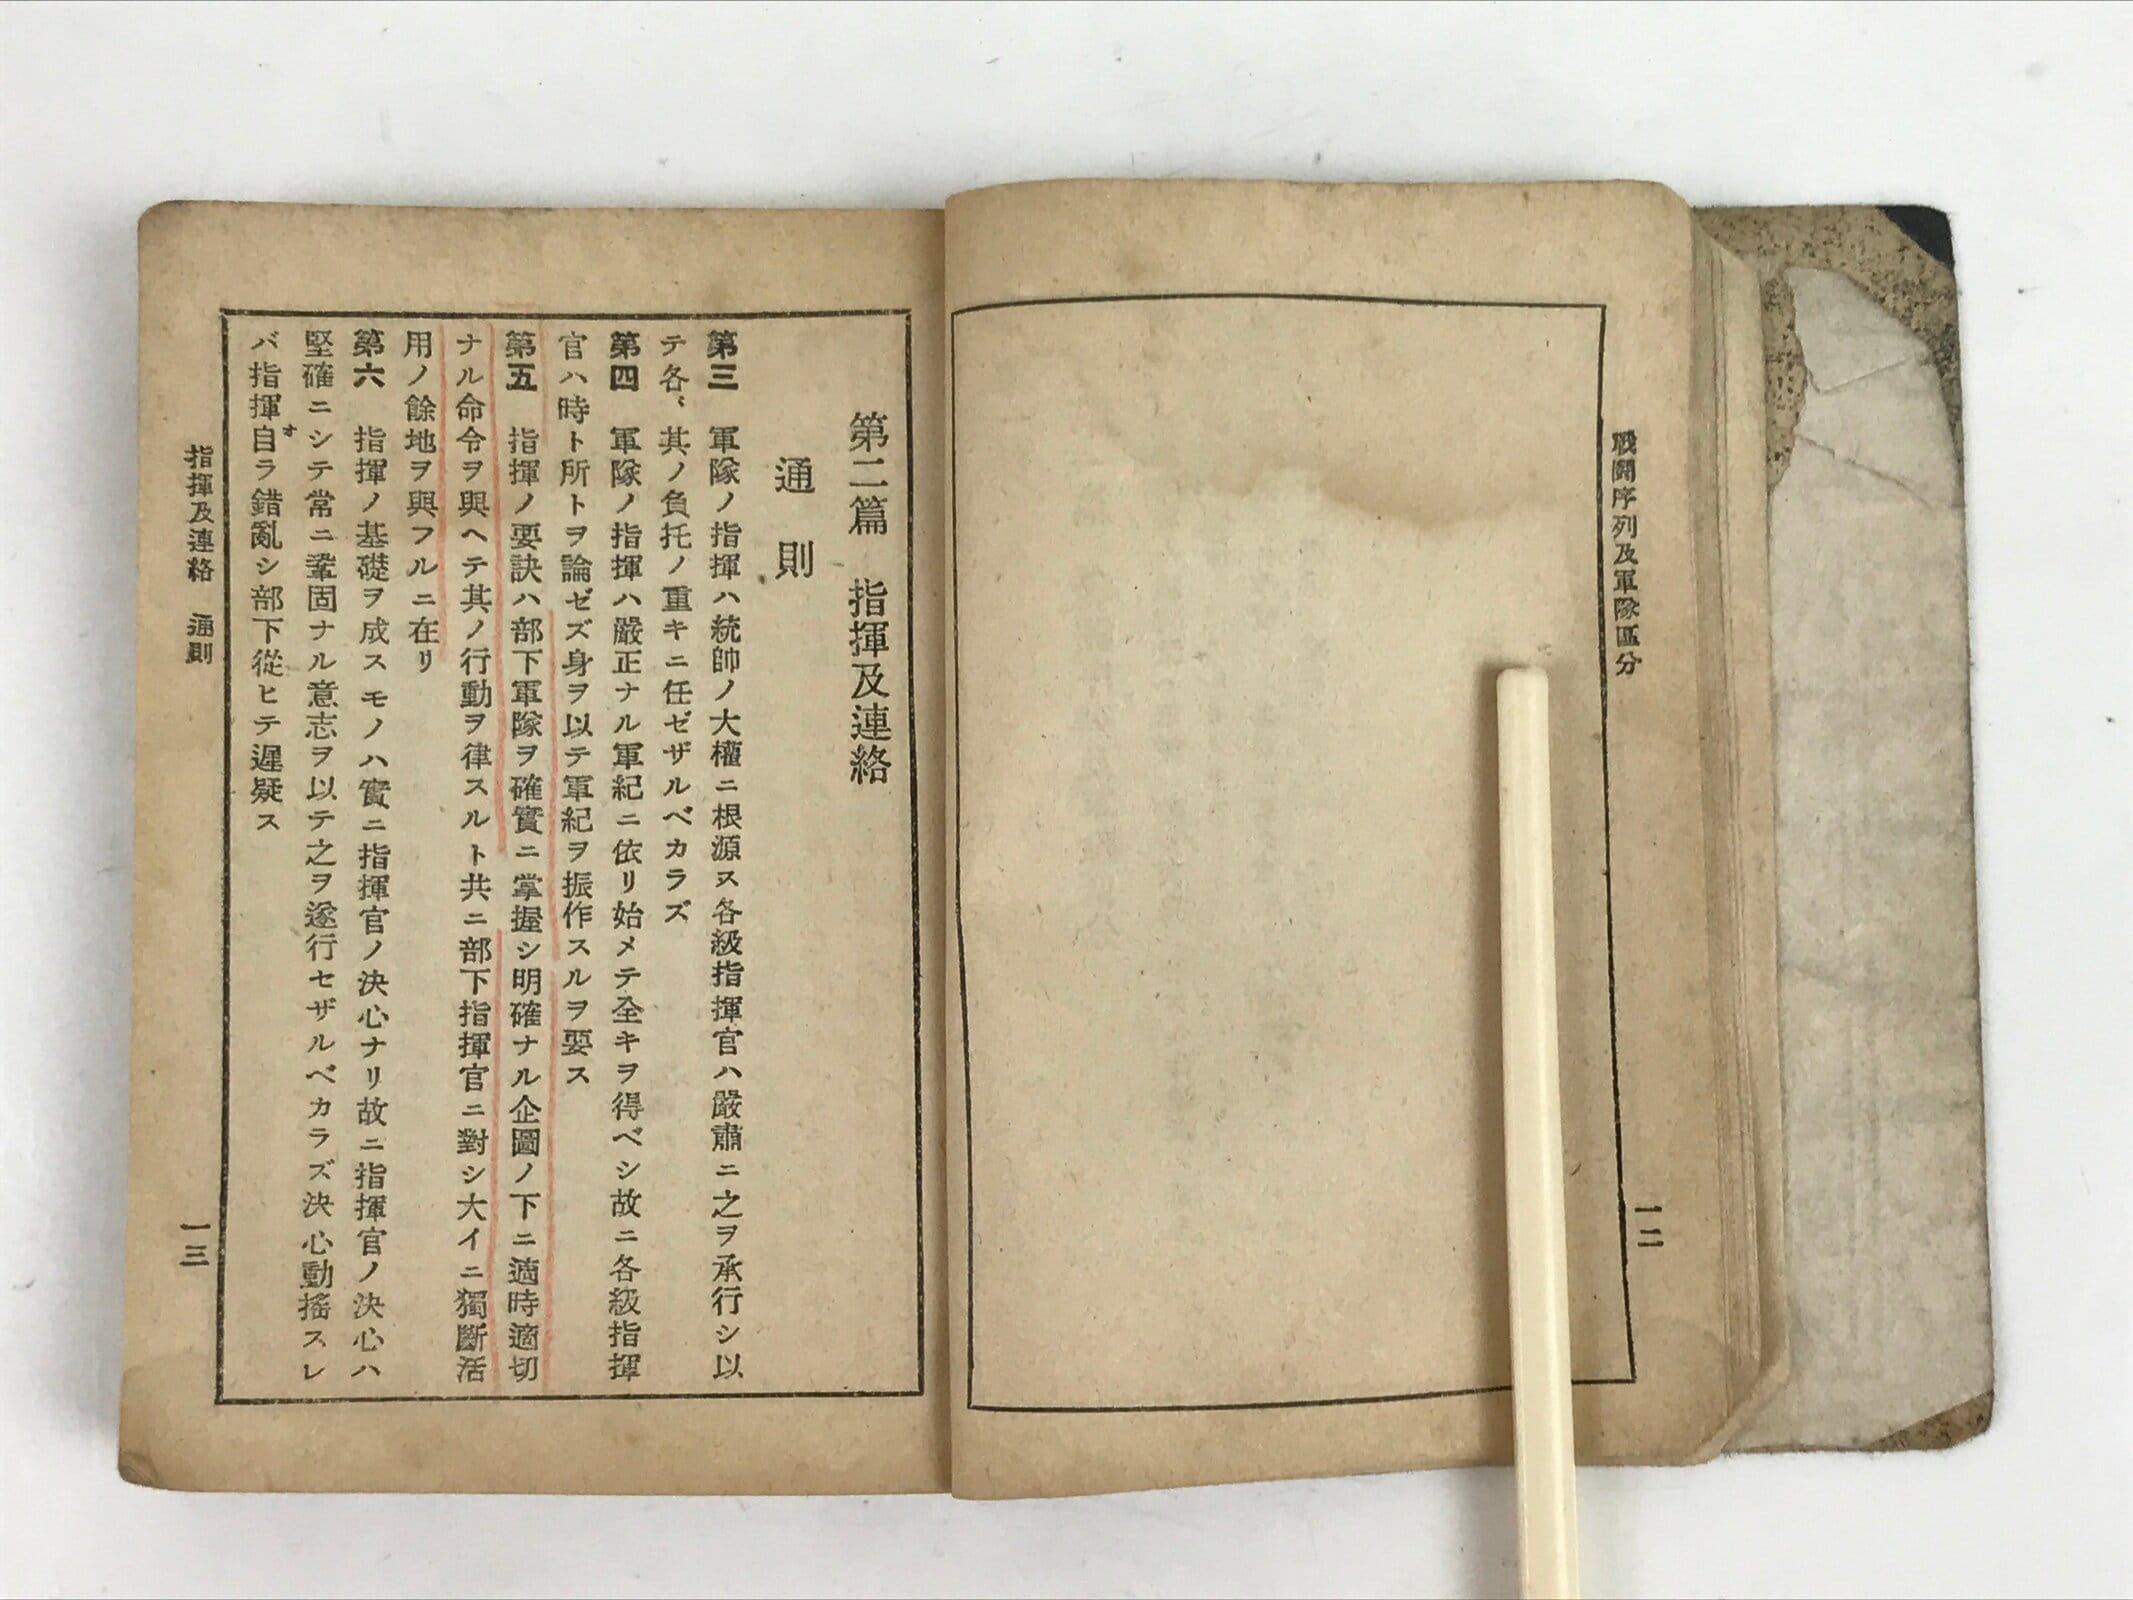 戰鬪序列及軍隊區分
一二
第二篇　指揮及連絡
通則
第三　軍隊ノ指揮ハ統帥ノ大權ニ根源ス各級指揮官ハ嚴肅ニ之ヲ承行シ以
テ各〻其ノ負托ノ重キニ任ゼザルベカラズ
第四　軍隊ノ指揮ハ嚴正ナル軍紀ニ依リ始メテ全キヲ得ベシ故ニ各級指揮
官ハ時ト所トヲ論ゼズ身ヲ以テ軍紀ヲ振作スルヲ要ス
第五　指揮ノ要訣ハ部下軍隊ヲ確實ニ掌握シ明確ナル企圖ノ下ニ適時適切
ナル命令ヲ與ヘテ其ノ行動ヲ律スルト共ニ部下指揮官ニ對シ大イニ獨斷活
用ノ餘地ヲ與フルニ在リ
第六　指揮ノ基礎ヲ成スモノハ實ニ指揮官ノ決心ナリ故ニ指揮官ノ決心ハ
堅確ニシテ常ニ鞏固ナル意志ヲ以テ之ヲ遂行セザルベカラズ決心動搖スレ
バ指揮自オラ錯亂シ部下從ヒテ遲疑ス
指揮及連絡　通則
一三